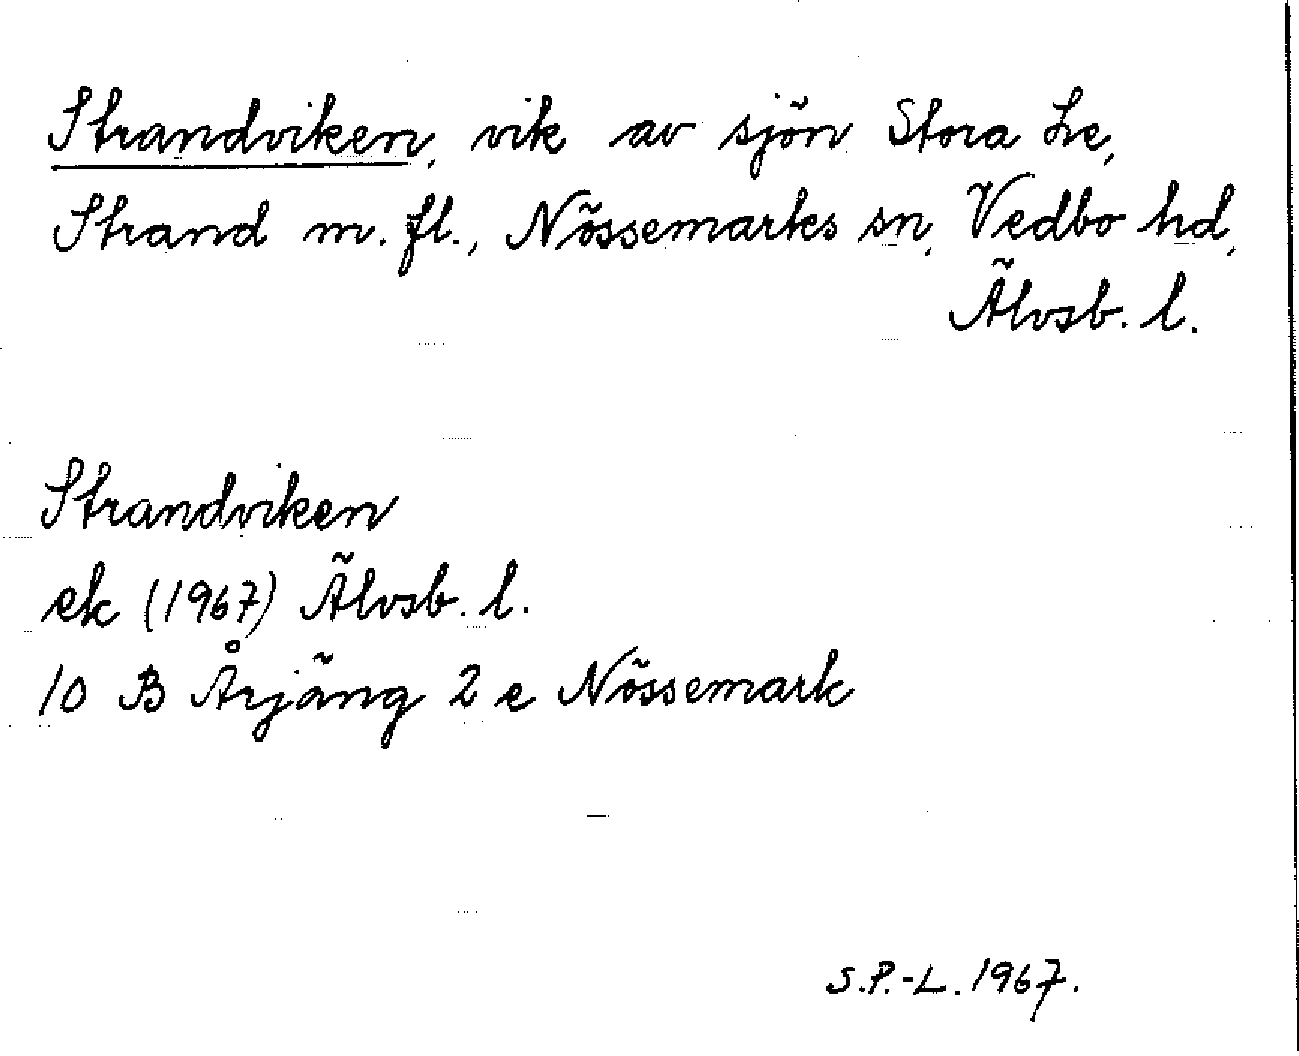 Strandviken, vik av sjön Stora Le,
Strand m. fl., Nössemarks sn, Vedbo hd,
Älvsb. l.
Strandviken
ek (1967) Älvsb. l.
10 B Årjäng 2 e Nössemark
S.P.-L. 1967.